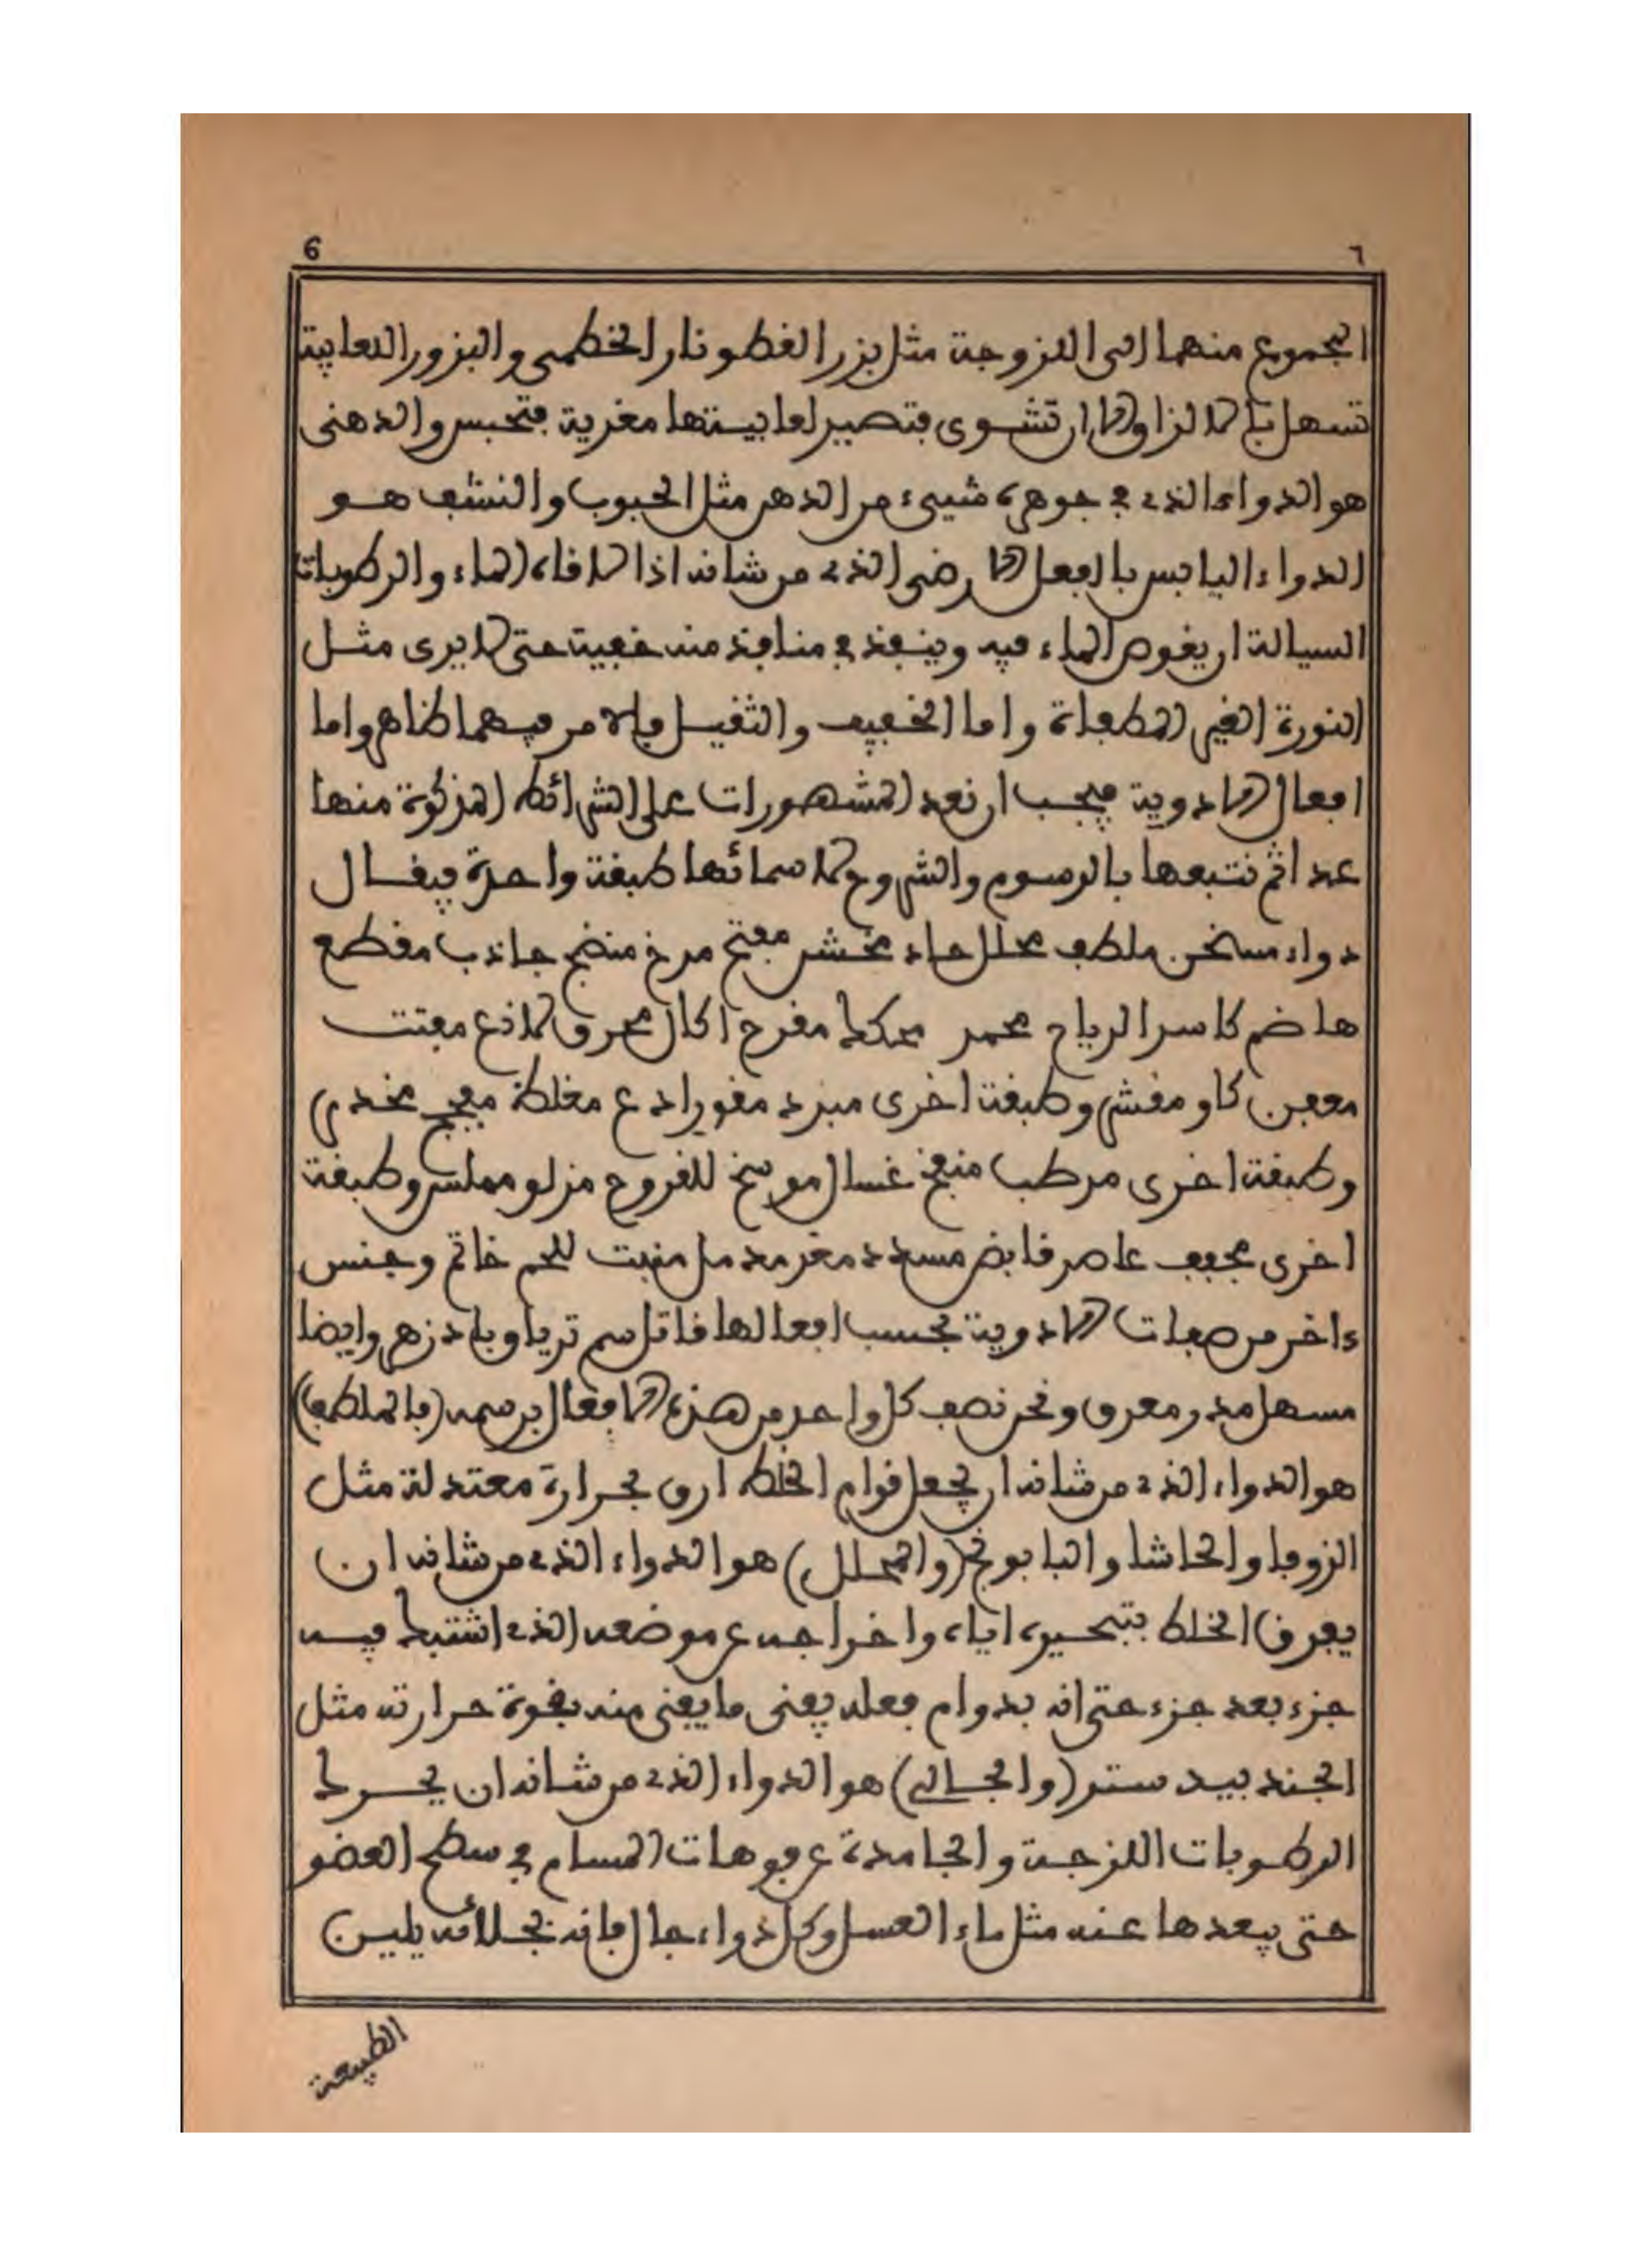 6 ٦
المجموع منهما الى اللزوجة مثل بزر القطونا والخطمى والبزور اللعابية
تسهل بالازلاق الا ان تشوى فتصير لعابيتها مغرية فتحبس والدهنى
هو الدواء الذى فى جوهره شيىء من الدهن مثل الحبوب والنشف هو
الدواء اليابس بالفعل الارضى الذى من شانه اذا لاقاه الماء والرطوبات
السيالة ان يغوص الماء فيه وينفذ فى منافذ منه خفية حتى لا يرى مثل
النورة الغير المطفاة واما الخفيف والثقيل فالامر فيهما ظاهر واما
افعال الادوية فيجب ان نعد المشهورات على الشرائط المذكورة منها
عدا ثم نتبعها بالرسوم والشروح لاسمائها طبقة واحدة فيقال
دواء مسخن ملطف محلل حاد مخشن مفتح مرخ منضج جاذب مقطع
هاضم كاسر الرياح محمر محكك مقرح اكال محرق لاذع مفتت
معفن كاو مقشر وطبقة اخرى مبرد مقو رادع مغلظ مفجج مخدر
وطبقة اخرى مرطب منفخ غسال موسخ للقروح مزلق مملس وطبقة
اخرى مجفف عاصر قابض مسدد مغر مدمل منبت للحم خاتم وجنس
ءاخر من صفات الادوية بحسب افعالها قاتل سم ترياق بادزهر وايضا
مسهل مدر معرق ونحن نصف كل واحد من هذه الافعال برسمه (فالملطف)
هو الدواء الذى من شانه ان يجعل قوام الخلط ارق بحرارة معتدلة مثل
الزوفا والحاشا والبابونج (والمحلل) هو الدواء الذى من شانه ان
يفرق الخلط بتبخيره اياه واخراجه عن موضعه الذى اشتبك فيه
جزء بعد جزء حتى انه بدوام فعله يفنى ما يفنى منه بقوة حرارته مثل
الجندبيدستر (والجالى) هو الدواء الذى من شانه ان يحرك
الرطوبات اللزجة والجامدة عن فوهات المسام فى سطح العضو
حتى يبعدها عنه مثل ماء العسل وكل دواء جال فانه بجلائه يلين
الطبيعة